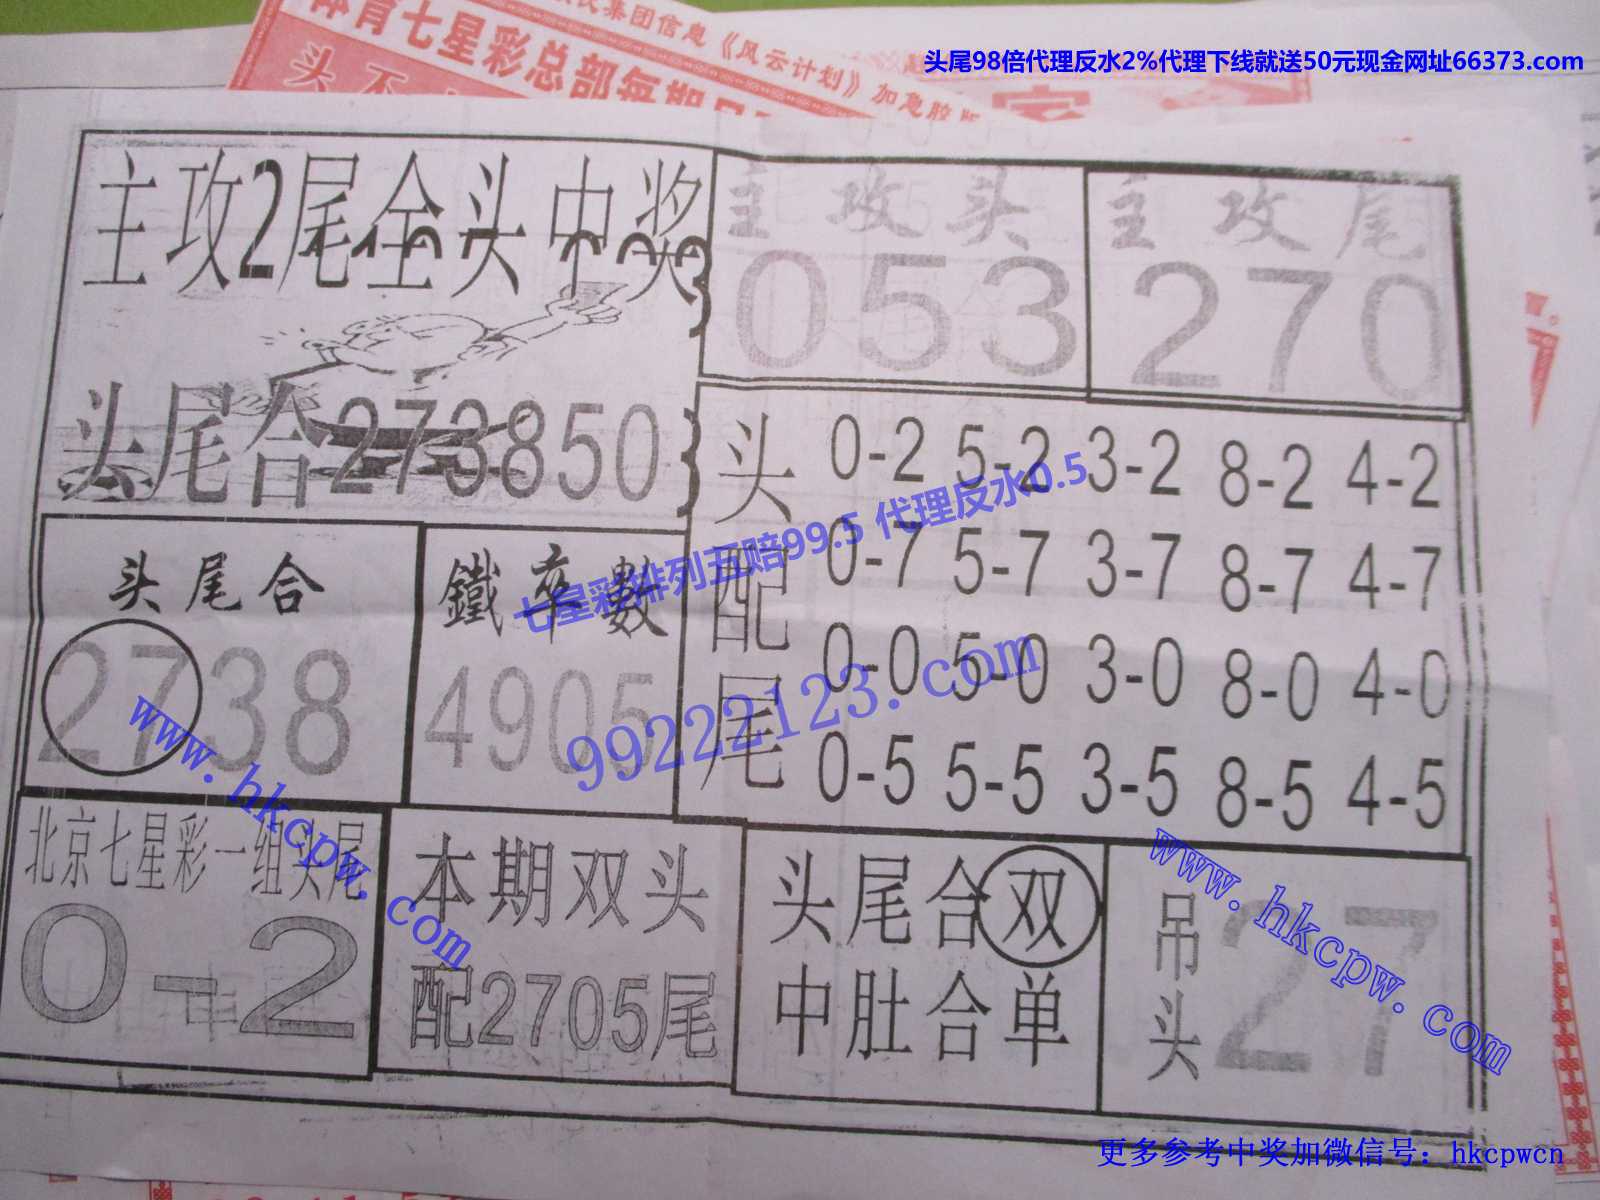 氏集团信息《风云计划》加急胶版
体育七星彩总部每期日
头不
头尾98倍代理反水2%代理下线就送50元现金网址66373.com
主攻2尾全头中奖
头尾合273850
主攻头
053
主攻尾
270
头配尾
0-2 5-2 3-2 8-2 4-2
0-7 5-7 3-7 8-7 4-7
0-0 5-0 3-0 8-0 4-0
0-5 5-5 3-5 8-5 4-5
头尾合
2738
鐵率數
4905
七星彩排列五赔99.5 代理反水0.5
99222123.com
www.hkcpw.com
北京七星彩一组头尾
0-2
本期双头
配2705尾
头尾合双
中肚合单
吊头
27
www.hkcpw.com
更多参考中奖加微信号：hkcpwcn